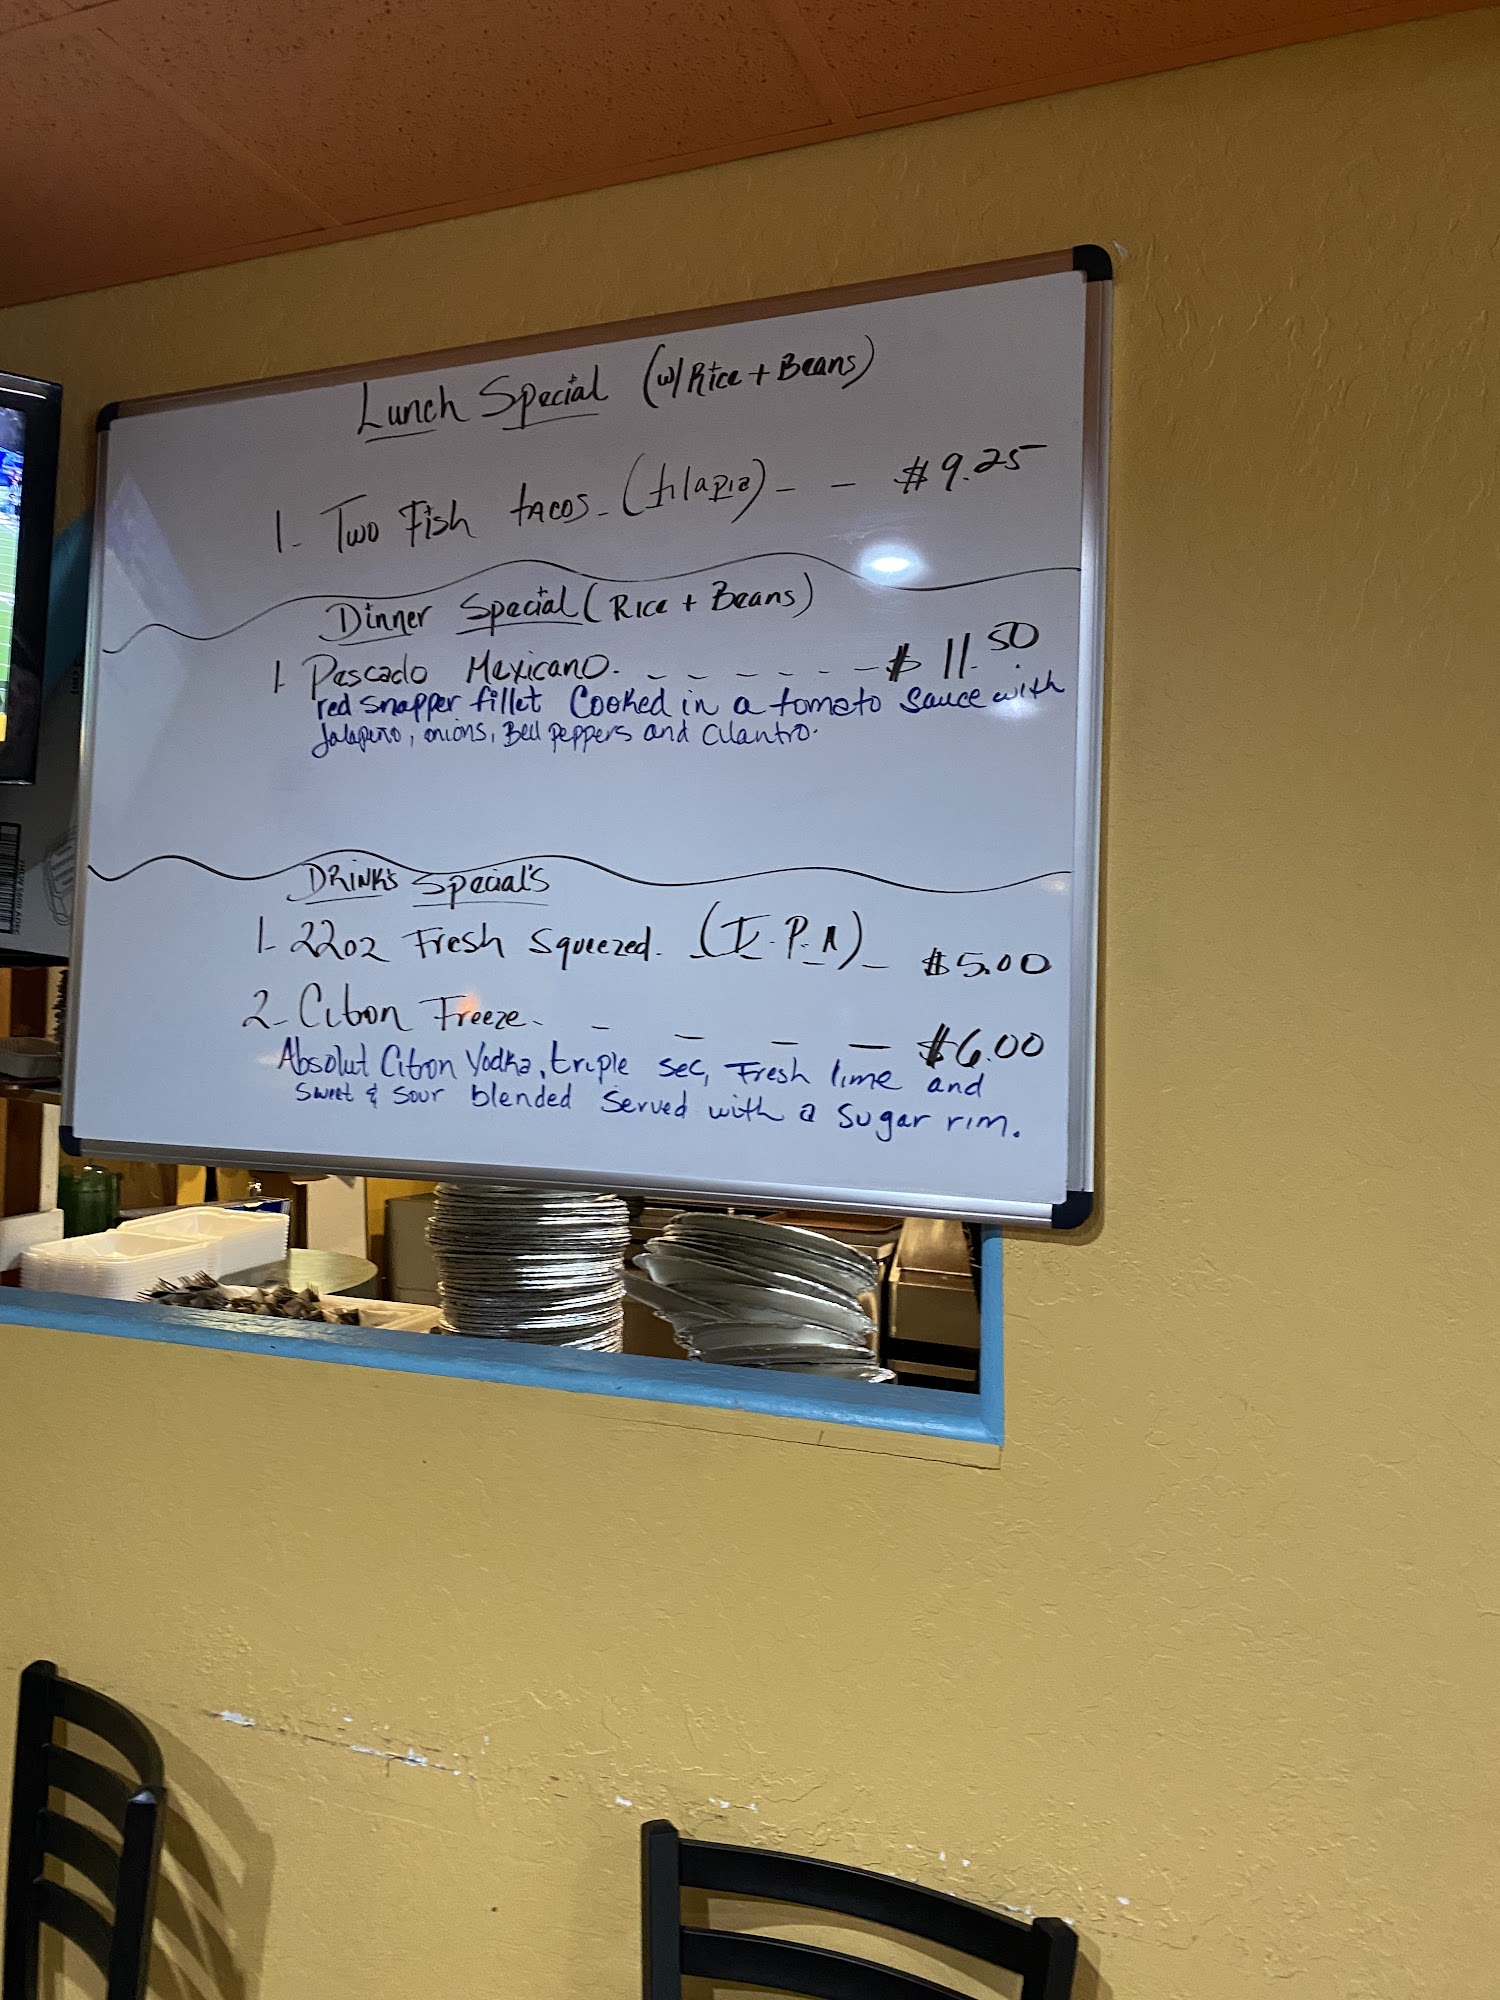 Lunch Special (w/ Rice + Beans)
1- Two Fish tacos - (tilapia) - - $9.25
Dinner Special (Rice + Beans)
1. Pescado Mexicano. - - - - - - $11.50
red snapper fillet Cooked in a tomato Sauce with
Jalapeño, onions, Bell peppers and cilantro.
DRINK'S Special's
1- 22oz Fresh Squeezed. (I.P.A) - $5.00
2- Citron Freeze - - - - - $6.00
Absolut Citron Vodka, triple sec, Fresh lime and
Sweet & Sour blended Served with a Sugar rim.